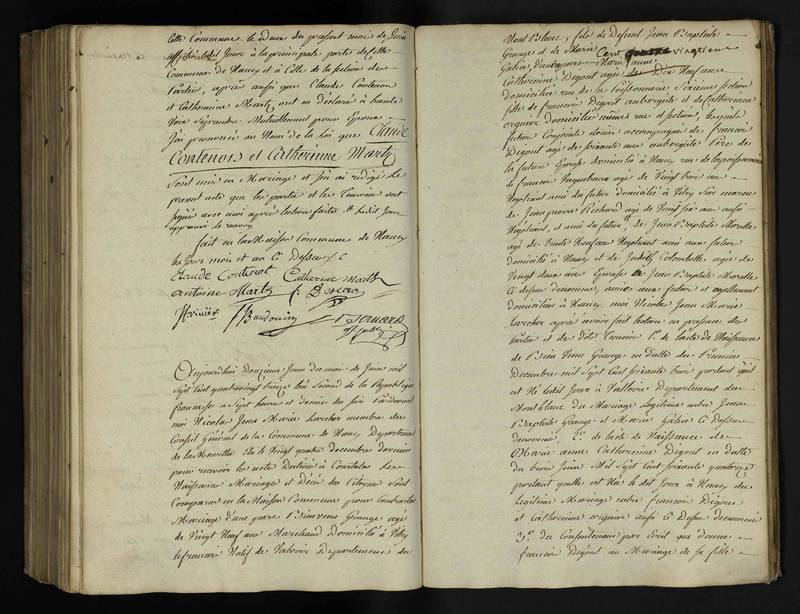 Cette Commune le deux du présent mois de Juin
affiché ledit Jour à la principale porte de cette
Commune de Nancy et à Celle de la Section des
Parties, après aussi que Claude Contenon
et Catherine Martz ont eu déclaré à haute
Voix Se prendre Mutuellement pour Epoux
J'ai prononcé au Nom de la loi que Claude
Contenois et Catherinne Martz
Sont unis en Mariage et j'en ai rédigé Le
présent acte que les parties et les Temoins ont
signé avec moi après lecture faite
fait en la Maison Commune de Nancy
les Jour mois et an Cy Dessus
Claude Contenot Catherine Martz
Antoine Martz
Baudouin Bernard
Aujourdhui Douzieme Jour du mois de Juin mil
Sept Cent quatrevingt treize l'an Second de la République
française à Sept heures et demie du soir Pardevant
moi Nicolas Jean Marie Larcher membre du
Conseil Général de la Commune de Nancy Departement
de la Meurthe Elu le Vingt quatre decembre dernier
pour recevoir les acte Destinés à Constater Les
Naissances Mariages et Décès des Citoyens Sont
Comparus en la Maison Commune pour Contracter
Mariage d'une part Bienvenu Grange agé
de Vingt Neuf ans Marchand Domicilié à Vitry
le françois Natif de Valloire Departement du
Mont Blanc, fils de Defunt Jean Baptiste
Grange et de Marie
Cent vingtieme
Galice, D'autre part Marie anne
Catherinne Degout agée de Dix Neuf ans
domiciliée rue de la Poissonnerie Sixieme Section
fille de françois Degout aubergiste et de Catherinne
orginier Domiciliés même rue et section, Lesquels
futurs Conjoints étoient accompagnés de francois
Degout agé de soixante ans aubergiste Pere de
la future Epouse domicilié à Nancy rue de la poissonnerie
de françois agé de Vingt trois ans
Négotiant ami du futur domicilié à Vitry Sur marne
de Jean pierre Richard agé de Vingt six ans aussi
Négotiant, et ami du futur, de Jean Baptiste Morelle
agé de trente Neuf ans Negotiant ami aux futurs
domicilié à Nancy et de Judith Colombelle agée de
Vingt deux ans Epouse de Jean Baptiste Morelle
Cy dessus denommé, amie aux futurs et egallement
domiciliée à Nancy, moi Nicolas Jean Marie
Larcher après avoir fait lecture en présence des
parties et des dits Temoins 1°. de l'acte de Naissance
de Bien Venu Grange en datte du Premier
Decembre mil Sept Cent soixante trois portant qu'il
est Né ledit Jour à Valloire Departement du
Mont blanc du Mariage Legitime entre Jean
Baptiste Grange et Marie Galice Cy Dessus
denommés, 2°. de l'acte de Naissance de
Marie anne Catherinne Degout en datte
du trois Juin Mil Sept Cent soixante quatorze
portant qu'elle est Née le dit Jour à Nancy du
Légitime Mariage entre françois Dégout
et Catherinne orginier aussi Cy Dessus denommés
3°. du Consentement par écrit que donne
françois Dégout au Mariage de sa fille